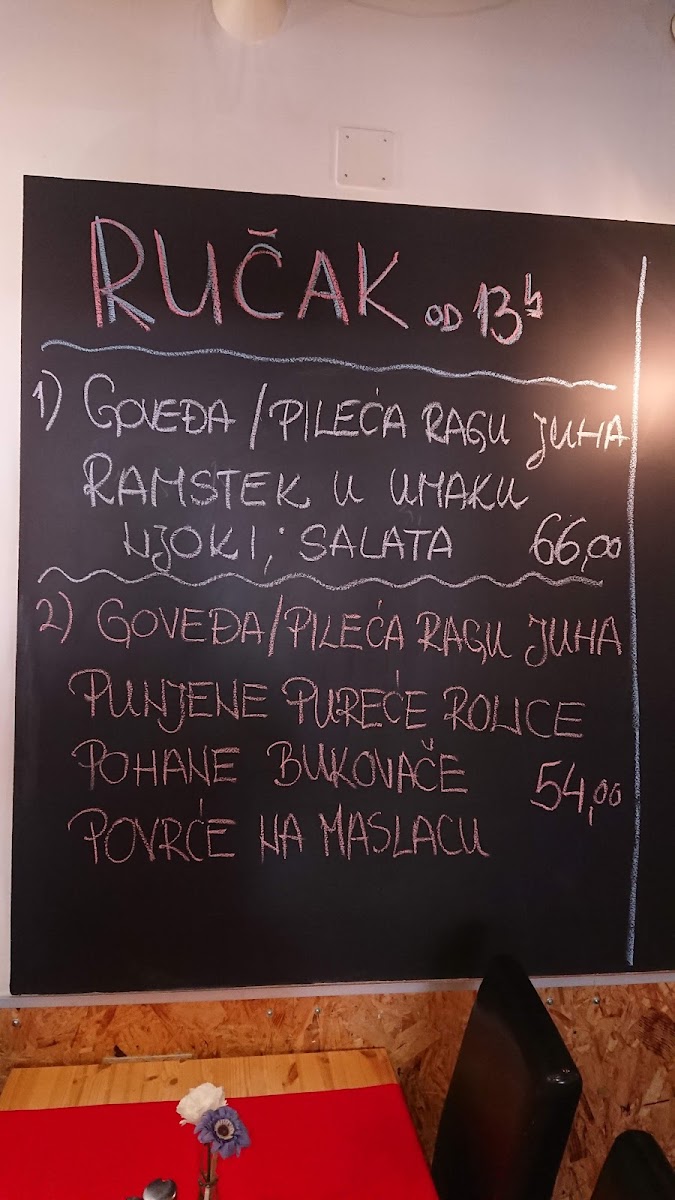 RUČAK OD 13h
1) GOVEĐA / PILEĆA RAGU JUHA
RAMSTEK U UMAKU
NJOKI; SALATA 66,00
2) GOVEĐA/PILEĆA RAGU JUHA
PUNJENE PUREĆE ROLICE
POHANE BUKOVAČE 54,00
POVRĆE NA MASLACU